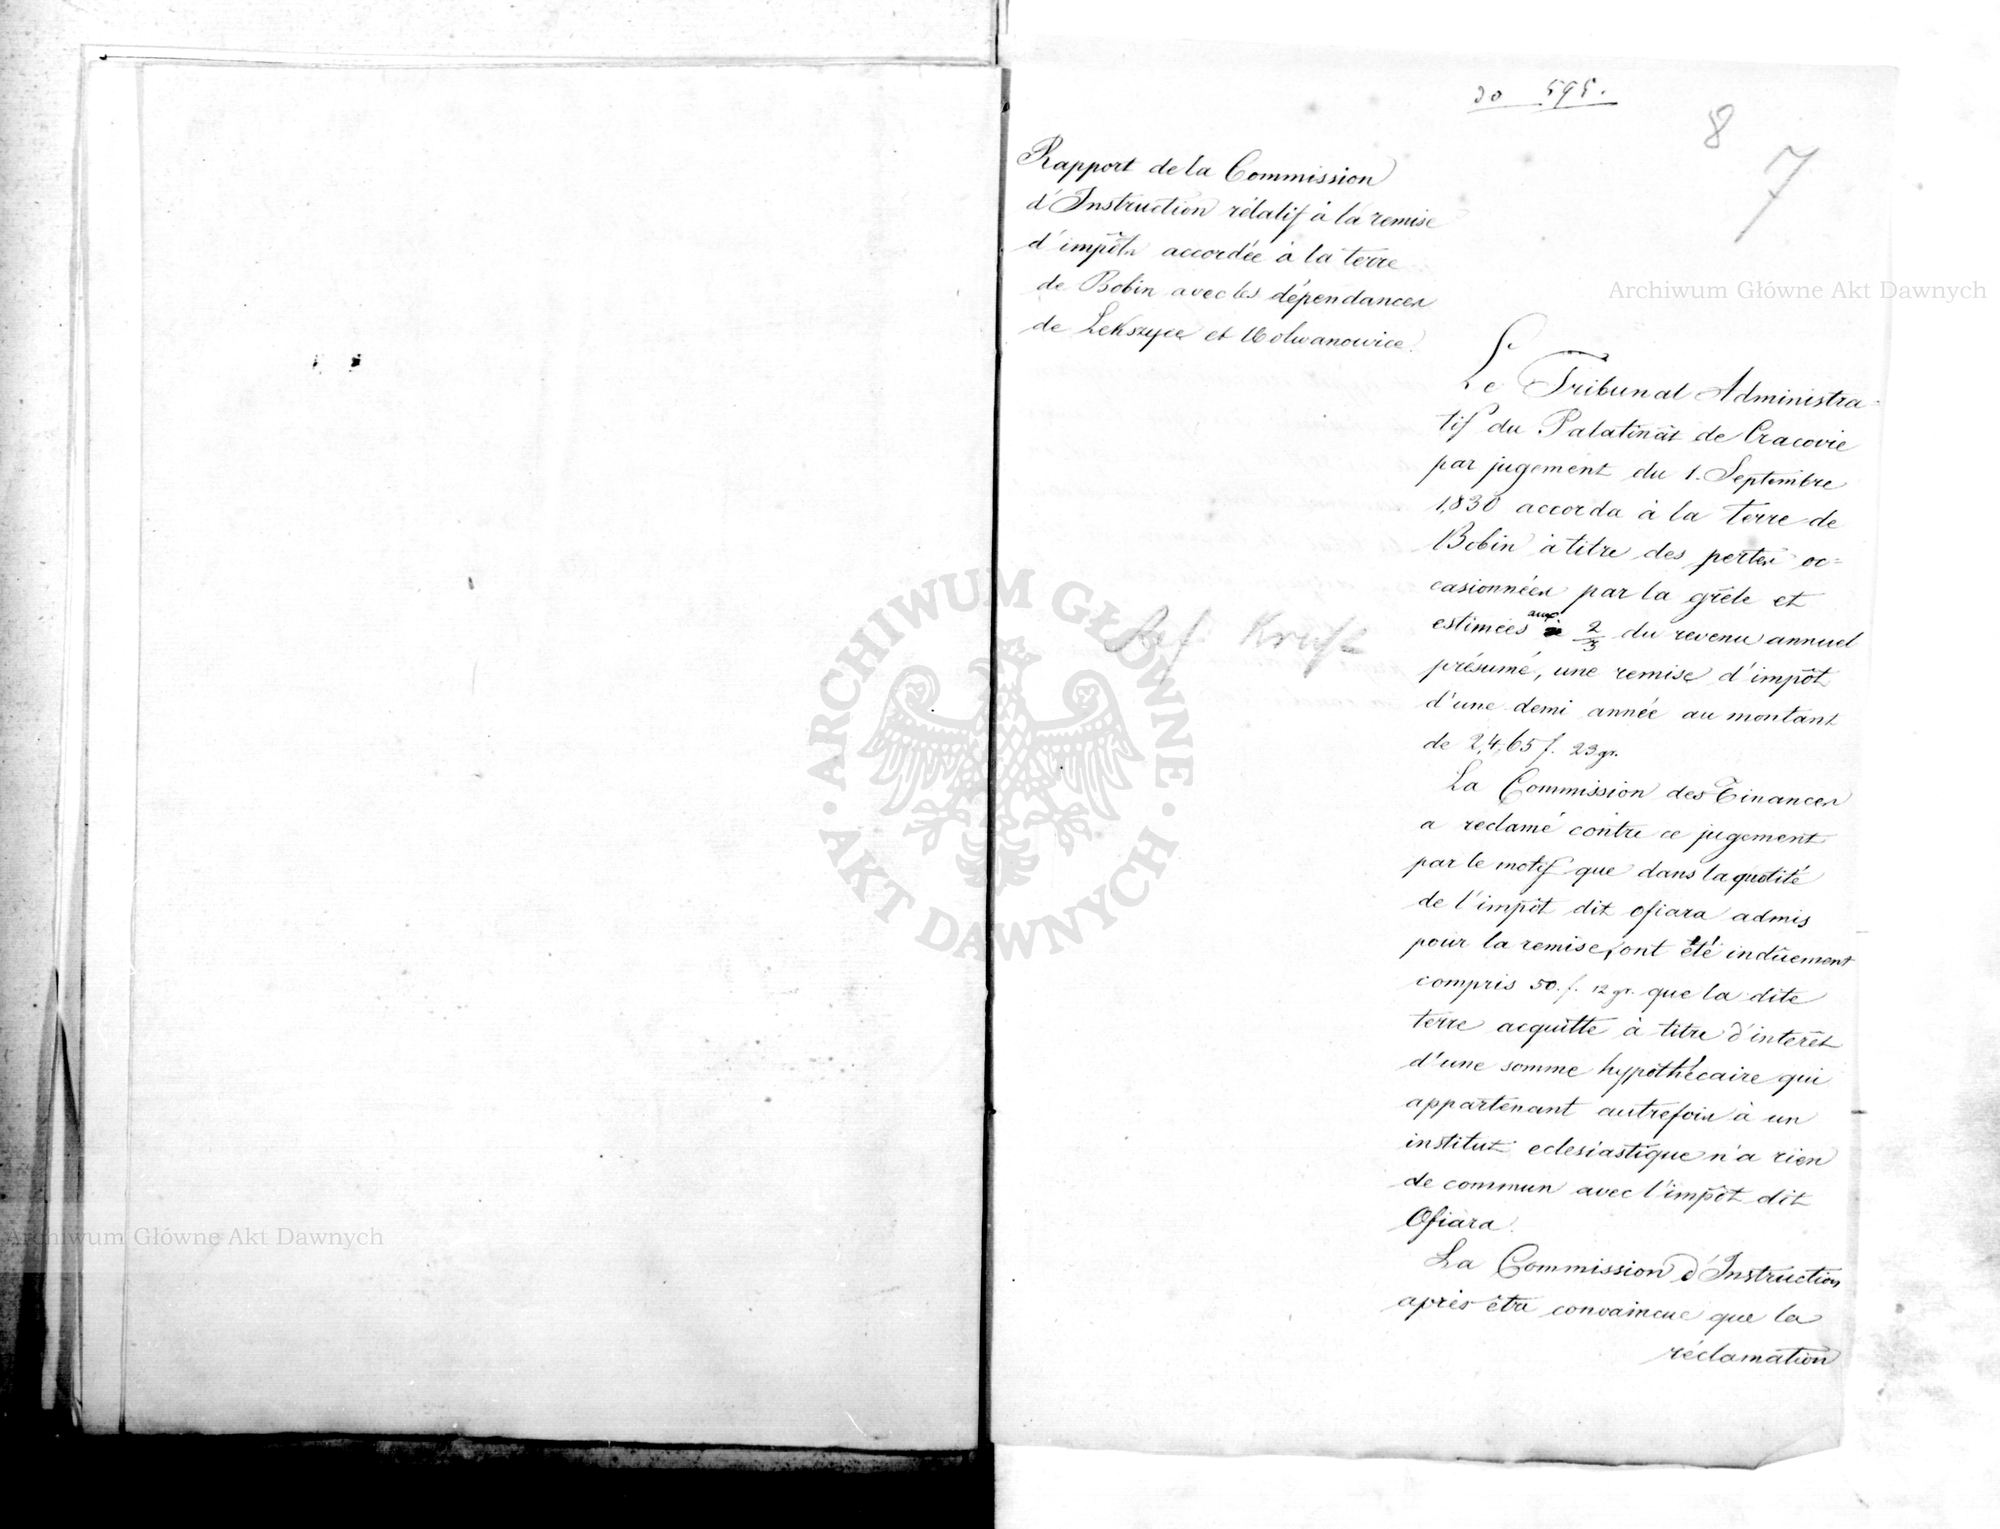 ad 595.
8
7
Rapport de la Commission
d'Instruction rélatif à la remise
d'impôts accordée à la terre
de Bobin avec les dépendances
de Lekszyce et Wolwanowice.
Le Tribunal Administra=
tif du Palatinat de Cracovie
par jugement du 1. Septembre
1,830 accorda à la terre de
Bobin à titre des pertes oc=
casionnées par la grêle et
estimées aux 2/3 du revenu annuel
présumé, une remise d'impôt
d'une demi année au montant
de 2,465 f. 23 gr.
La Commission des Finances
a reclamé contre ce jugement
par le motif que dans la quotité
de l'impôt dit ofiara admis
pour la remise, ont été indûement
compris 50. f. 12 gr. que la dite
terre acquitte à titre d'interêt
d'une somme hypothécaire qui
appartenant autrefois à un
institut eclesiastique n'a rien
de commun avec l'impôt dit
Ofiara.
La Commission d'Instruction
après être convaincue que la
réclamation
Ref.
Archiwum Główne Akt Dawnych
Archiwum Główne Akt Dawnych
ARCHIWUM GŁÓWNE
AKT DAWNYCH